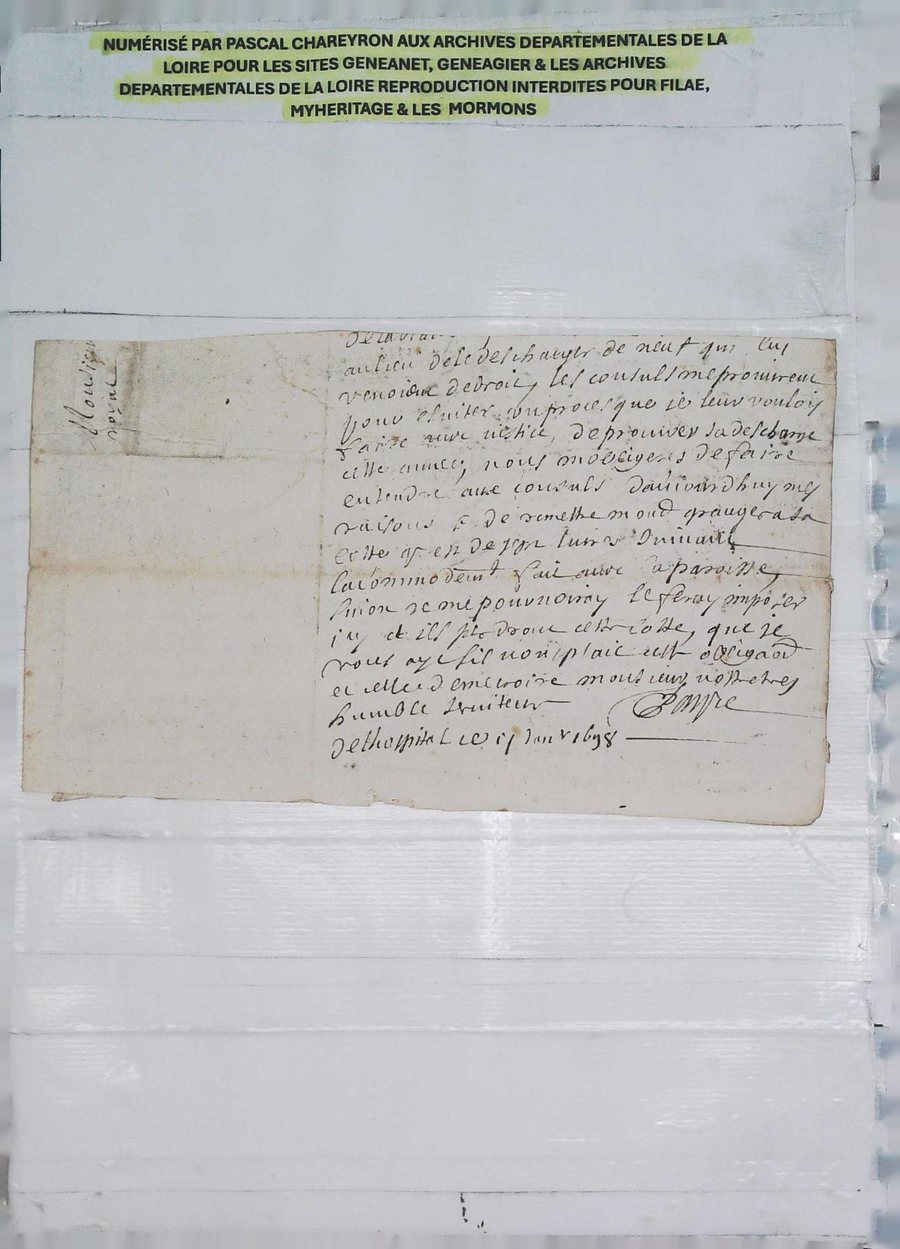 NUMÉRISÉ PAR PASCAL CHAREYRON AUX ARCHIVES DEPARTEMENTALES DE LA
LOIRE POUR LES SITES GENEANET, GENEAGIER & LES ARCHIVES
DEPARTEMENTALES DE LA LOIRE REPRODUCTION INTERDITES POUR FILAE,
MYHERITAGE & LES MORMONS
Monsieur
royal
au lieu de le deschauger de neuf qui luy
venoient de droit, les consuls me promirent
pour esuiter un proces que je leur voulois
faire avec justice, de prouver sa descharge
cette annee, vous m'obligeres de faire
entendre aux consuls d'aujourdhuy mes
raisons & de remettre mond granger a sa
cotte qui est de
l'acommodemt fait avec la paroisse,
sinon je me pourvoiray le feray imposer
icy et ils perdront cette cotte, que je
vous aye sil vous plait cette obligaon
et celle d'estre moe monsieur, vostre tres
humble serviteur
de lhospital ce 17 Janvr 1698